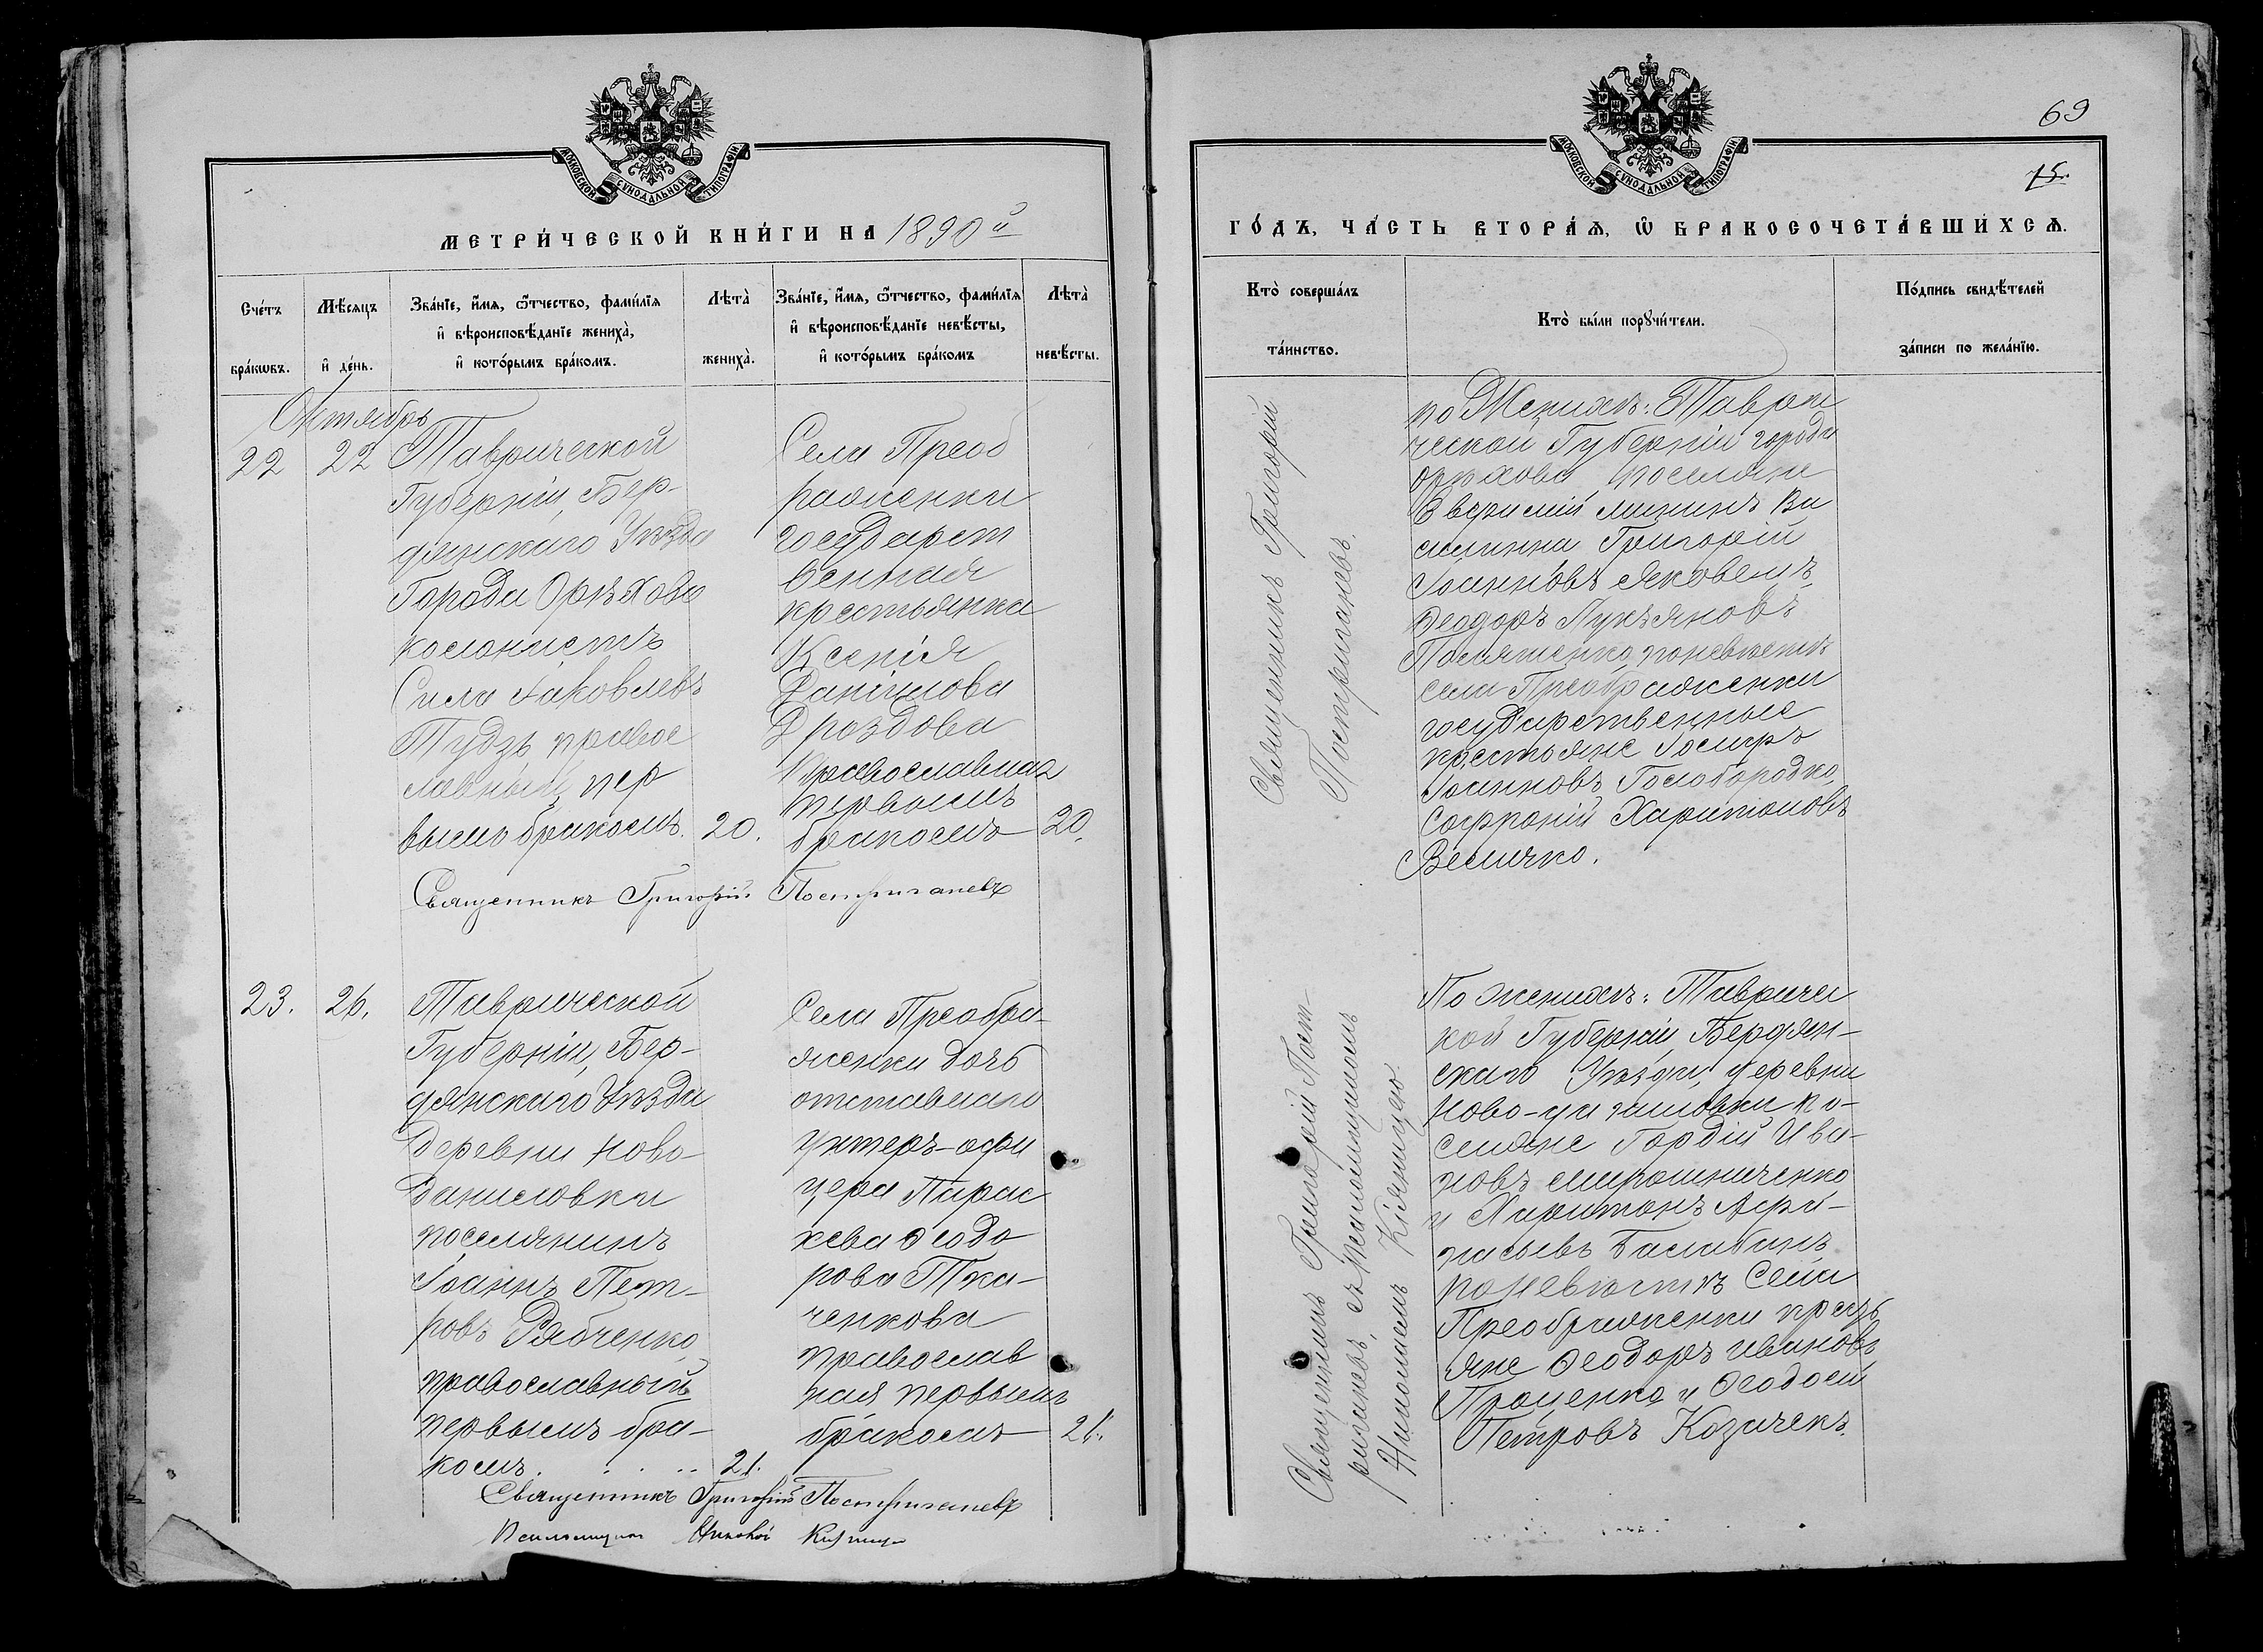 МОСКОВСКОЙ СѴНОДАЛЬНОЙ ТИПОГРАФІИ
МЕТРИ́ЧЕСКОЙ КНИ́ГИ НА 1890й
Сче́тъ бра́кѡвъ.
Мѣ́сяцъ и҆ де́нь.
Зва́нїе, и҆́мя, ѻ҆́тчество, фами́лїя
и҆ вѣроисповѣ́данїе жениха̀,
и҆ кото́рымъ бра́комъ.
Лѣта̀ жениха̀.
Зва́нїе, и҆́мя, ѻ҆́тчество, фами́лїя
и҆ вѣроисповѣ́данїе невѣ́сты,
и҆ кото́рымъ бра́комъ
Лѣта̀ невѣ́сты.
Октябрь
22
22
Таврической
Губерніи, Бер-
дянскаго Уѣзда
Города Орѣхова
колонистъ
Сила Іаковлевъ
Тудзь, правос
лавный, пер
вымъ бракомъ.
20.
Села Преоб
раженки
государст
венная
крестьянка
Ксенія
Даніилова
Дроздова
Православная
первымъ
бракомъ
20.
Священникъ Григорій Постригачевъ
23.
26.
Таврической
Губерніи, Бер-
дянскаго Уѣзда
Деревни Ново-
Даниловки
поселянинъ
Іоаннъ Пет-
ровъ Рябченко
православный
первымъ бра-
комъ.
21.
Села Преобра-
женки дочь
отставнаго
унтеръ-офи
цера Парас
кева Ѳеодо
рова Тка-
ченкова
православ
ная первымъ
бракомъ
21.
Священникъ Григорій Постригачевъ
Псаломщикъ Николай
69
15.
МОСКОВСКОЙ СѴНОДАЛЬНОЙ ТИПОГРАФІИ
ГО́ДЪ, ЧА́СТЬ ВТОРА́Ѧ, Ѡ҆ БРАКОСОЧЕТА́ВШИХСѦ.
Кто̀ соверша́лъ
та́инство.
Кто̀ бы́ли порꙋчи́тели.
По́дпись свидѣ́телей
за́писи по жела́нїю.
Священникъ Григорій
Постригачевъ.
по Женихѣ: Таври
ческой Губерніи города
Орѣхова поселяне
Евфимій
Григорій
Іоанновъ Яковецъ
Ѳеодоръ Лукьяновъ
по невѣстѣ
села Преображенки
государственные
крестьяне Іосифъ
Іоанновъ Голобородко,
Софроній Харитоновъ
Величко.
Священникъ Григорій Пост-
ригачевъ, съ псаломщикомъ
Николаемъ
По женихѣ: Тавричес
кой Губерніи, Бердян-
скаго Уѣзда, деревни
Ново-даниловки по-
селяне Гордій Ива-
новъ Мирошниченко
и Харитонъ Афа-
насьевъ Балабанъ
по невѣстѣ Села
Преображенки кресть
яне Ѳеодоръ Ивановъ
Проценко и Ѳеодосій
Петровъ Козаченъ.